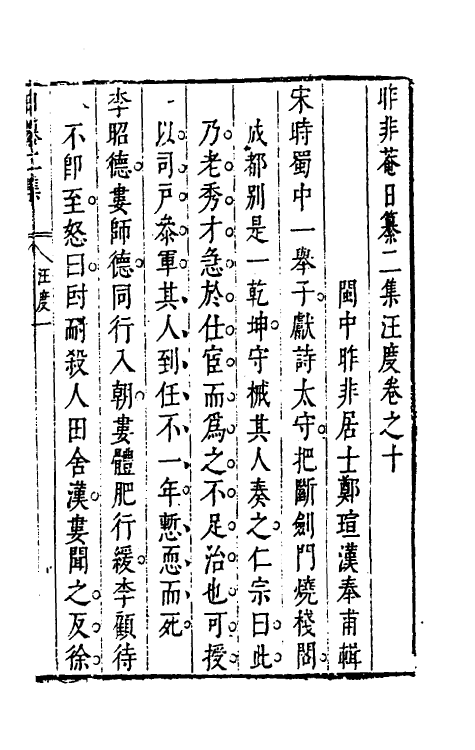 昨非菴日纂二集汪度卷之十
閩中昨非居士鄭瑄漢奉甫輯
宋時蜀中一舉子獻詩太守把斷劍門燒棧閣
成都別是一乾坤守械其人奏之仁宗曰此
乃老秀才急於仕宦而爲之不足治也可授
以司戶叅軍其人到任不一年慙恧而死
李昭德婁師德同行入朝婁體肥行緩李顧待
不卽至怒曰囙耐殺人田舍漢婁聞之反徐
日纂二集
汪度
一